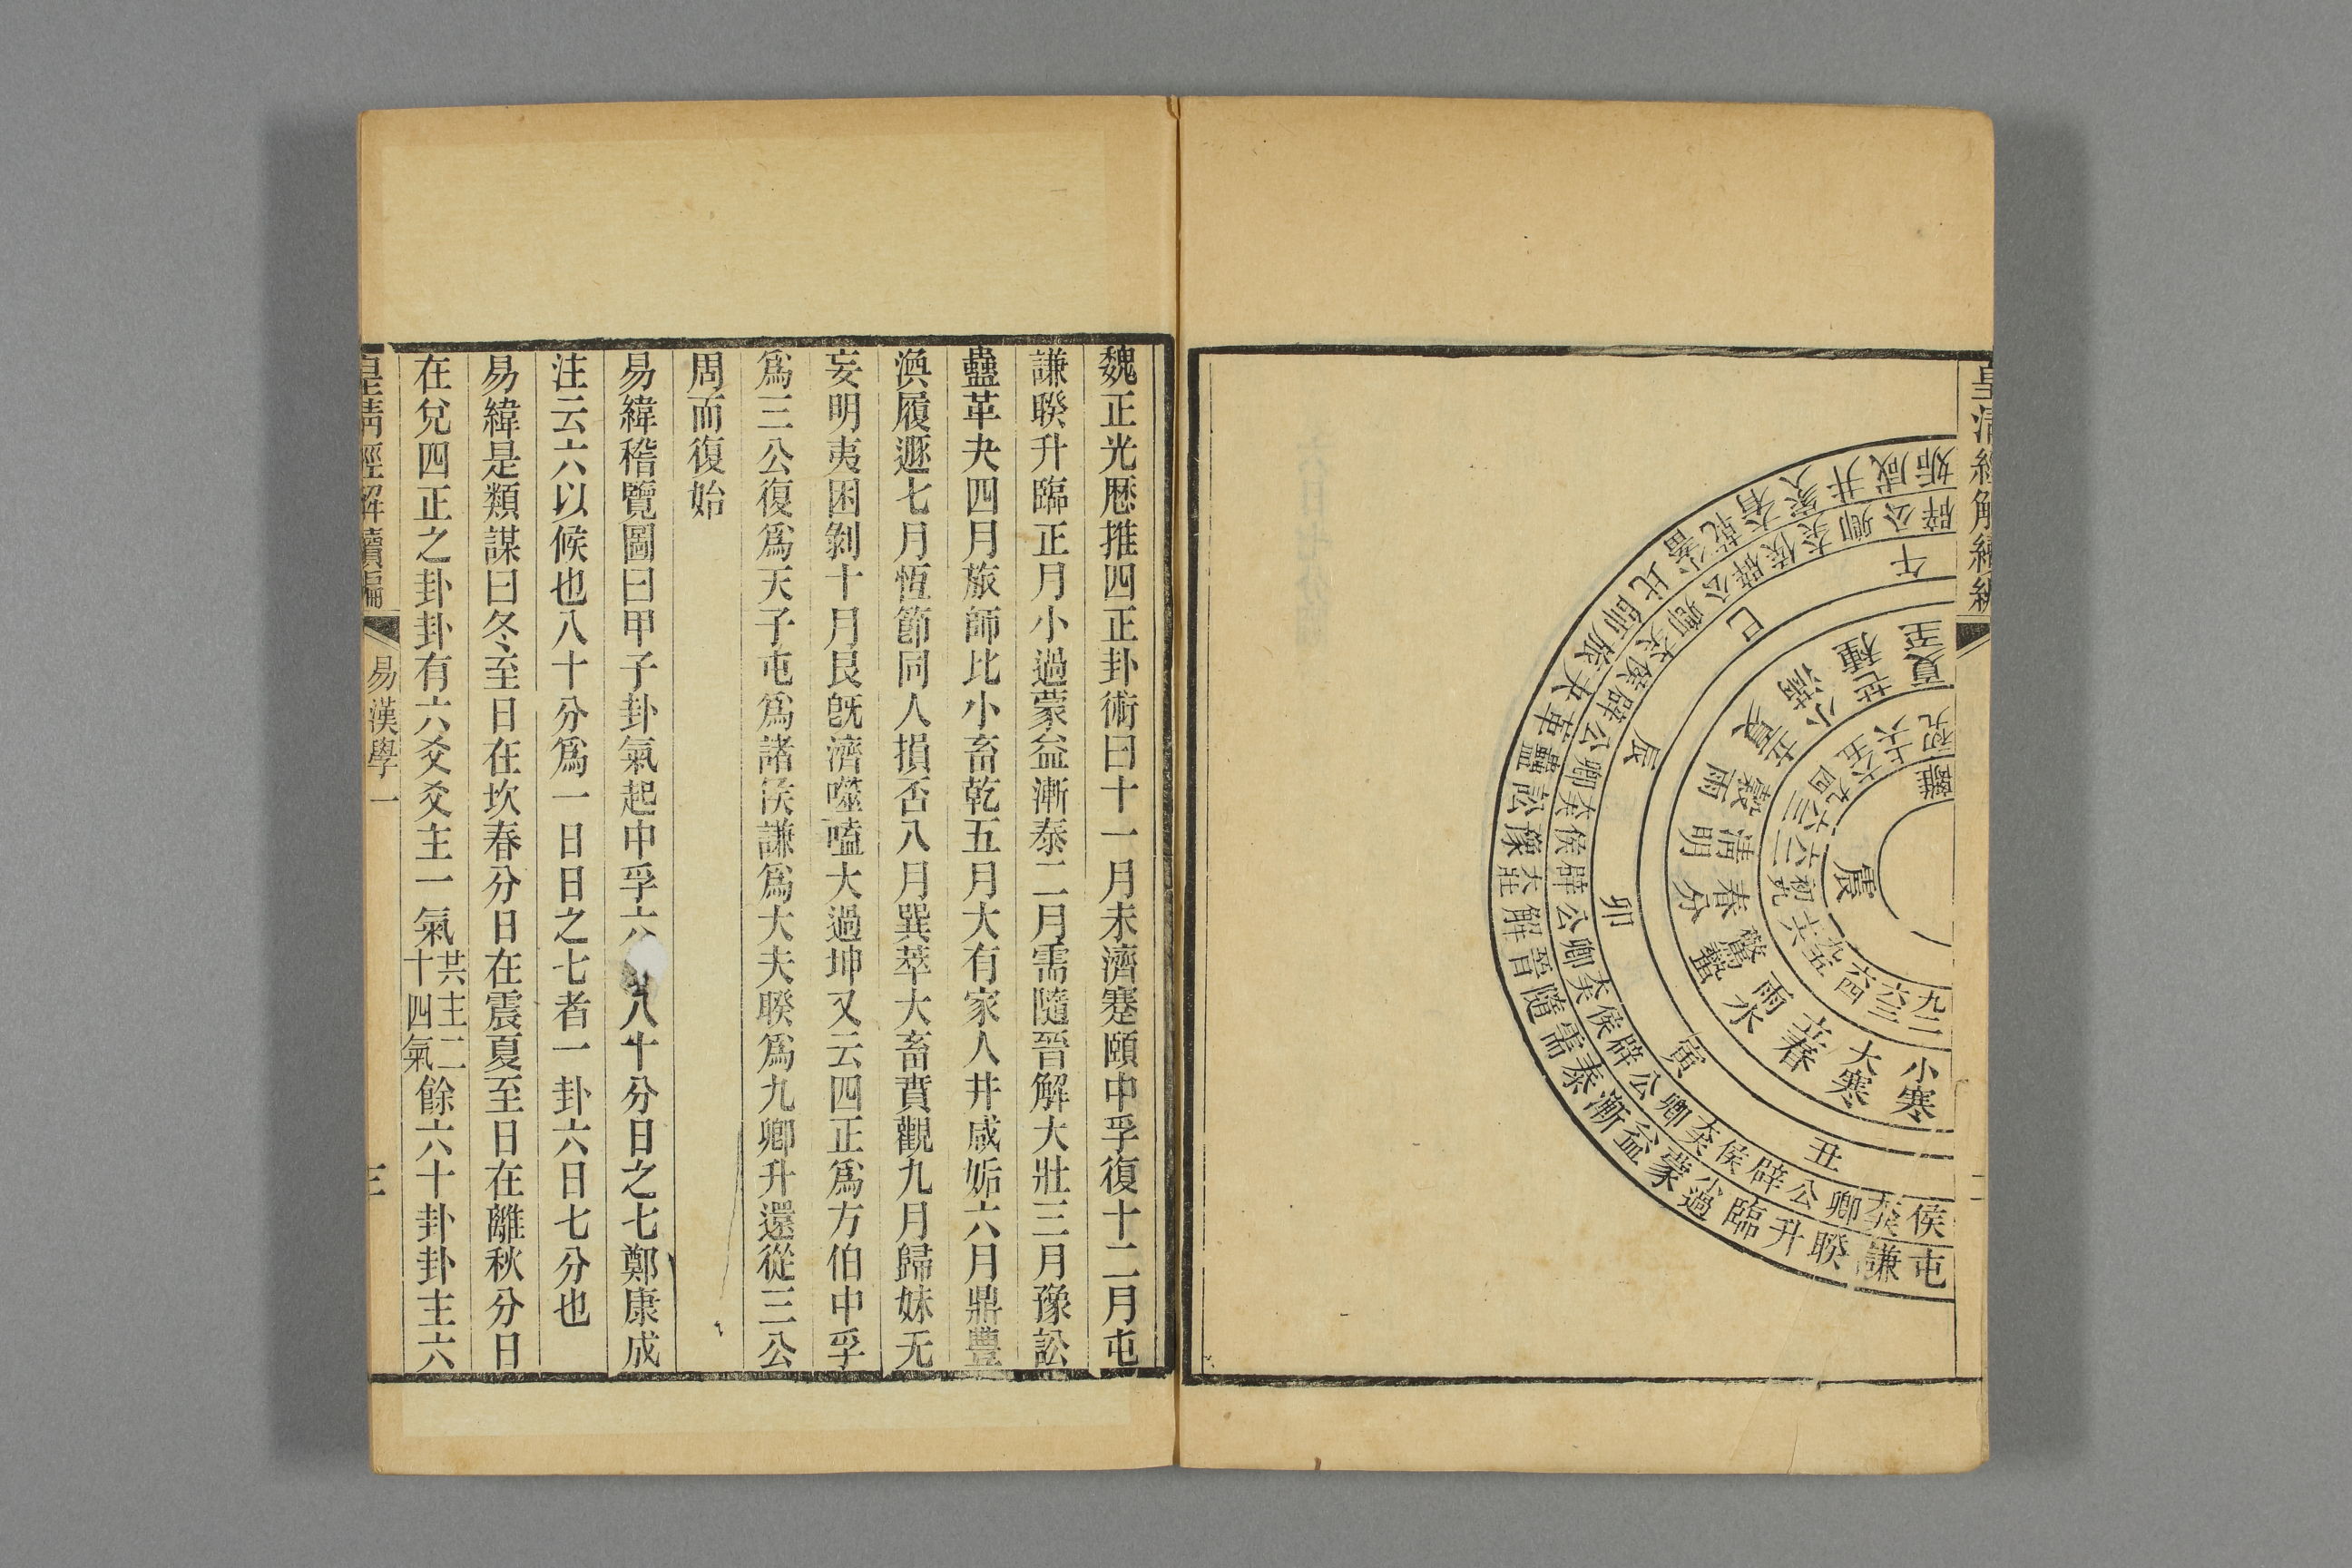 皇清經解續編
二
姤咸井家人大有乾小畜比師旅夬革蠱訟豫大壯解晉隨需泰漸益蒙小過臨升睽謙屯
辟公卿大夫侯辟公卿大夫侯辟公卿大夫侯辟公卿大夫侯辟公卿大夫侯辟公卿大夫侯
午巳辰卯寅丑
夏至芒種小滿立夏穀雨清明春分驚蟄雨水立春大寒小寒
初九上六六五九四六三六二初九上六九五六四六三九二
離震
魏正光歷推四正卦術曰十一月未濟蹇頤中孚復十二月屯
謙睽升臨正月小過蒙益漸泰二月需隨晉解大壯三月豫訟
蠱革夬四月旅師比小畜乾五月大有家人井咸姤六月鼎豐
渙履遯七月恆節同人損否八月巽萃大畜賁觀九月歸妹无
妄明夷困剝十月艮既濟噬嗑大過坤又云四正爲方伯中孚
爲三公復爲天子屯爲諸侯謙爲大夫睽爲九卿升還從三公
周而復始
易緯稽覽圖曰甲子卦氣起中孚六八十分日之七鄭康成
注云六以候也八十分爲一日日之七者一卦六日七分也
易緯是類謀曰冬至日在坎春分日在震夏至日在離秋分日
在兌四正之卦卦有六爻爻主一氣共主二十四氣餘六十卦卦主六
皇清經解續編
易漢學一
三